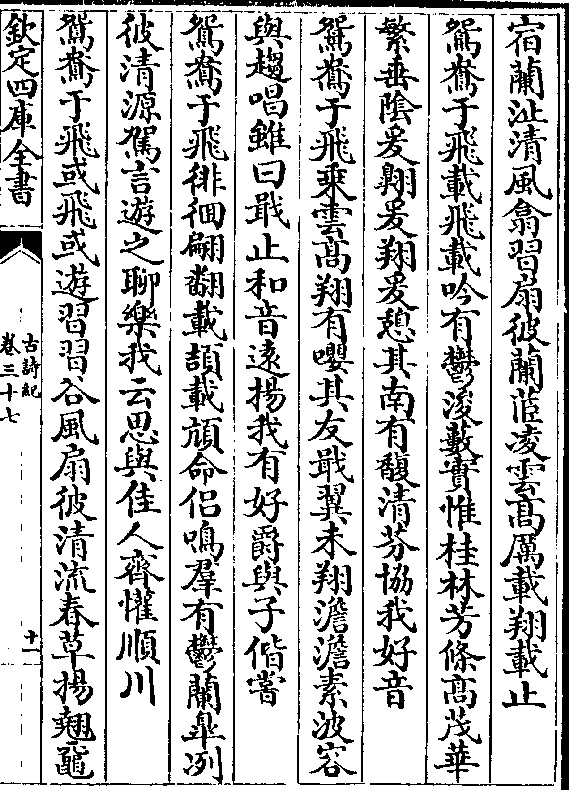 宿蘭沚清風翕習扇彼蘭茝凌雲髙厲載翔載止
鴛鴦于飛載飛載吟有鬱浚藪實惟桂林芳條髙茂華
繁垂陰爰翺爰翔爰憩其南有馥清芬協我好音
鴛鴦于飛乗雲髙翔有嚶其友戢翼未翔澹澹素波容
與趨唱雖曰戢止和音逺揚我有好爵與子偕嘗
鴛鴦于飛徘徊翩翻載頡載頏命侣鳴羣有鬱蘭臯冽
彼清源駕言遊之聊樂我云思與佳人齊懽順川
鴛鴦于飛或飛或遊習習谷風扇彼清流春草揚翹黿
欽定四庫全書
古詩紀
卷三十七
十一